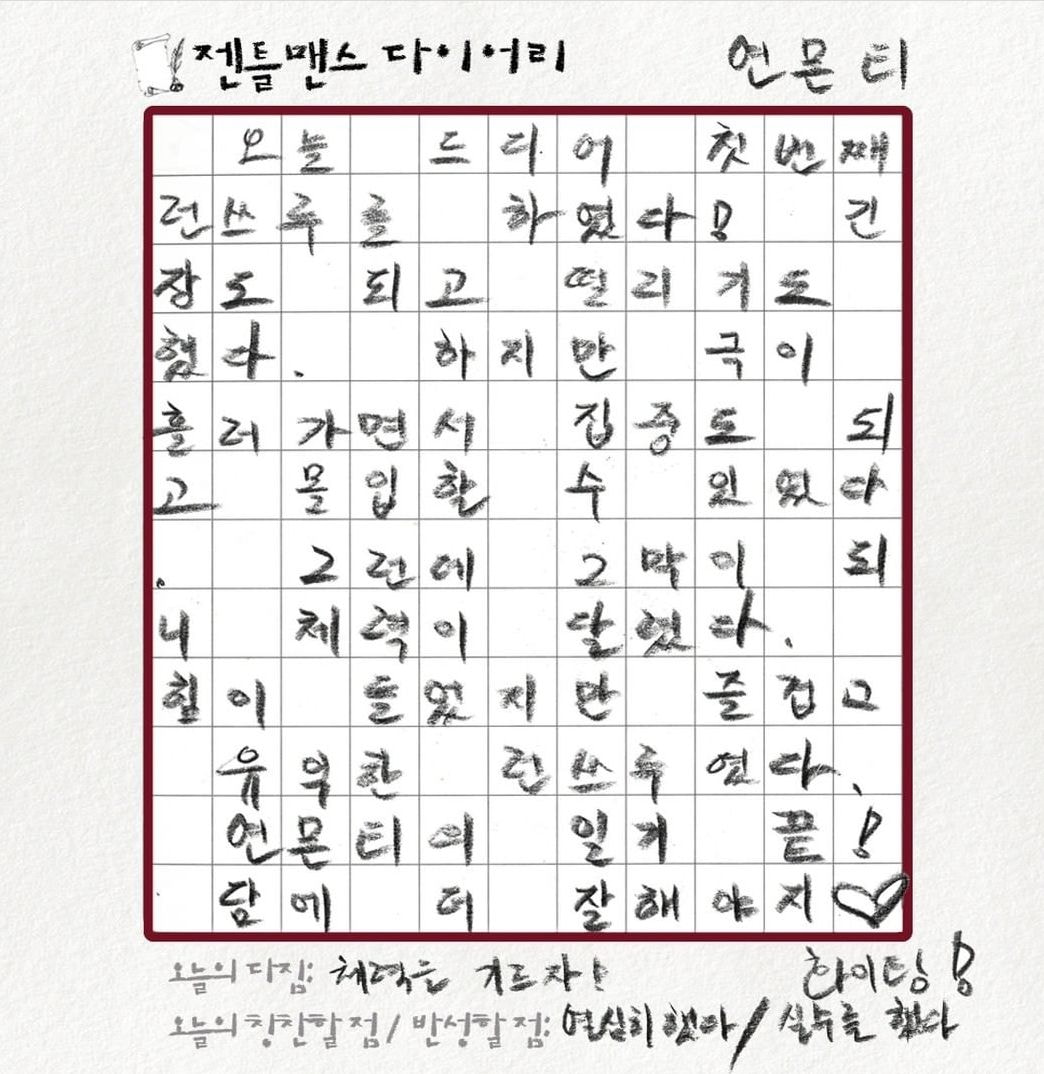 젠틀맨스 다이어리 연몬티
오늘 드디어 첫번째
런쓰루를 하였다! 긴
장도 되고 떨리기도
했다. 하지만 극이
흘러가면서 집중도 되
고 몰입할 수 있었다
. 그런데 2막이 되
니 체력이 달렸다.
힘이 들었지만 즐겁고
유익한 런쓰루였다.
연몬티의 일기 끝!
담에 더 잘해야지♡
오늘의 다짐: 체력을 기르자! 화이팅!
오늘의 칭찬할 점 / 반성할 점: 열심히 했다 / 실수를 했다